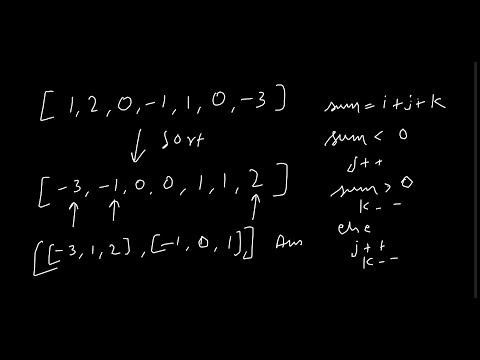 [ 1, 2, 0, -1, 1, 0, -3 ]
sort
[ -3, -1, 0, 0, 1, 1, 2 ]
[[-3, 1, 2], [-1, 0, 1]] Ans
sum = i + j + k
sum < 0
j++
sum > 0
k--
else
j++
k--